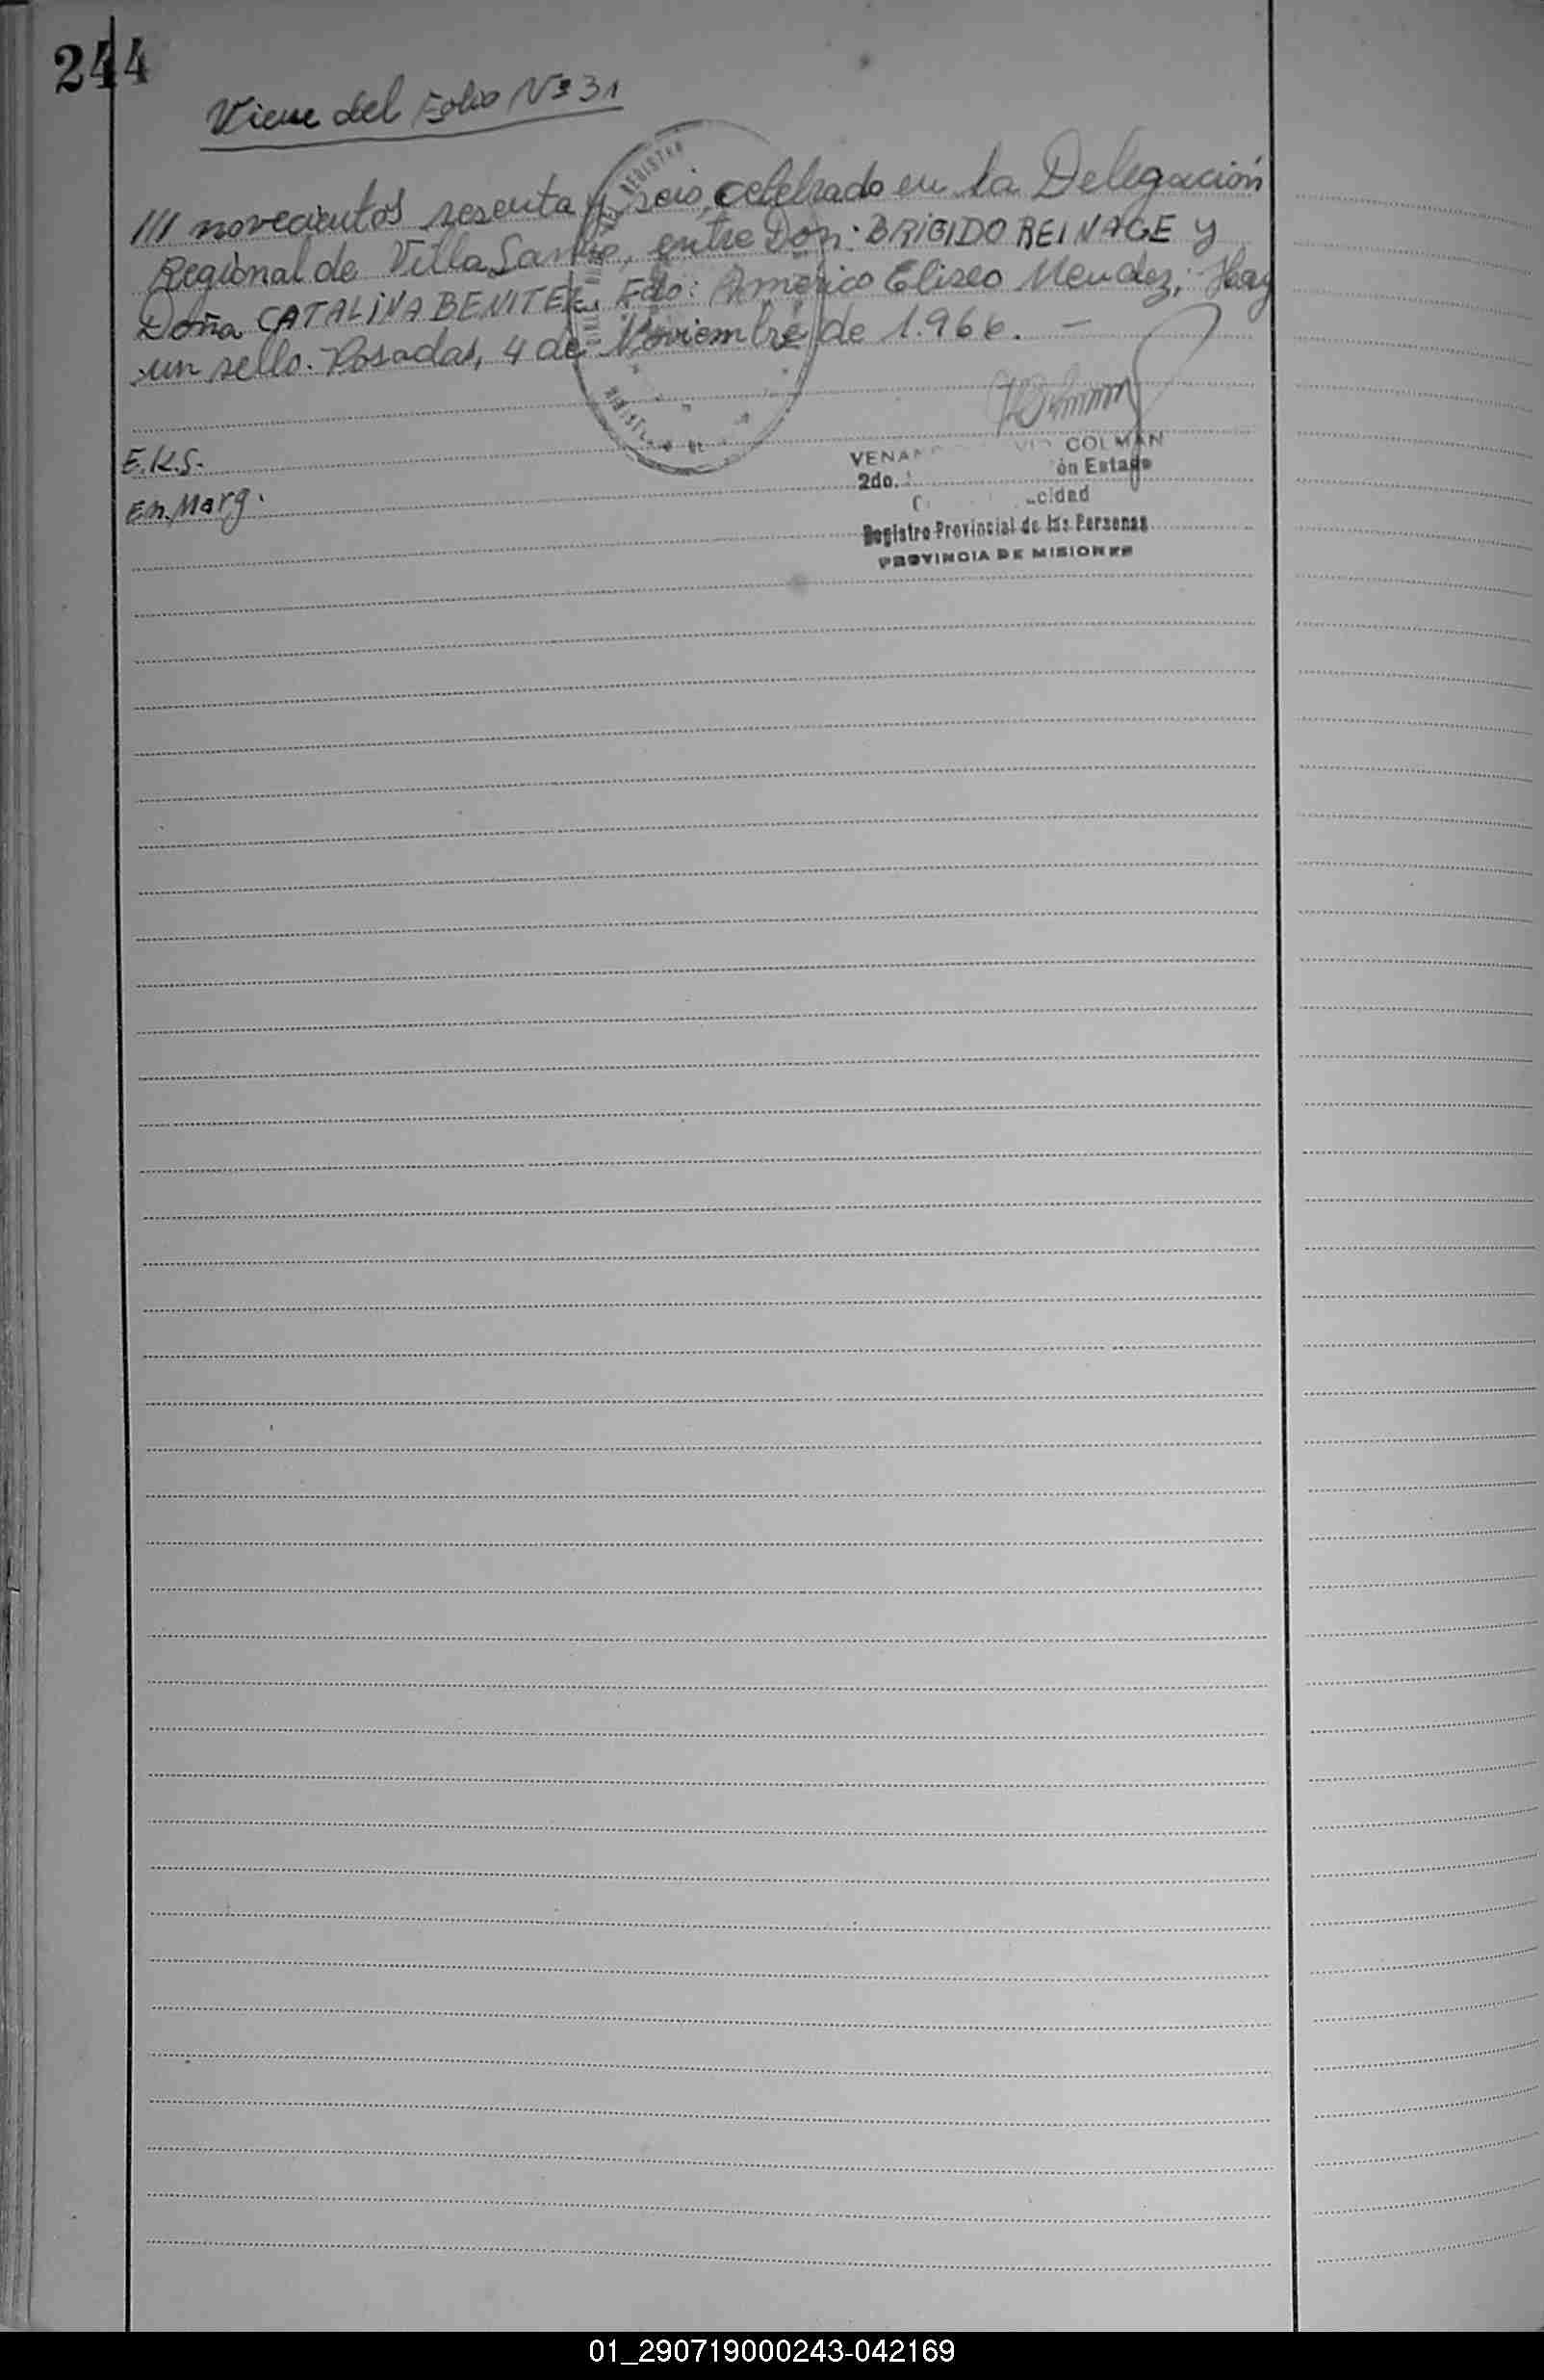 244
Viene del Folio Nº 31
/// novecientos sesenta y seis, celebrado en la Delegación
Regional de Villa Sarita, entre Don: BRIGIDO REINAGE y
Doña CATALINA BENITEZ. Fdo: Americo Eliseo Mendez; Hay
un sello. Posadas, 4 de Noviembre de 1.966. -
E.K.S.
En. Marg.
VENAN COLMAN
2do. ón Estado
cidad
Registro Provincial de las Personas
PROVINCIA DE MISIONES
01_290719000243-042169